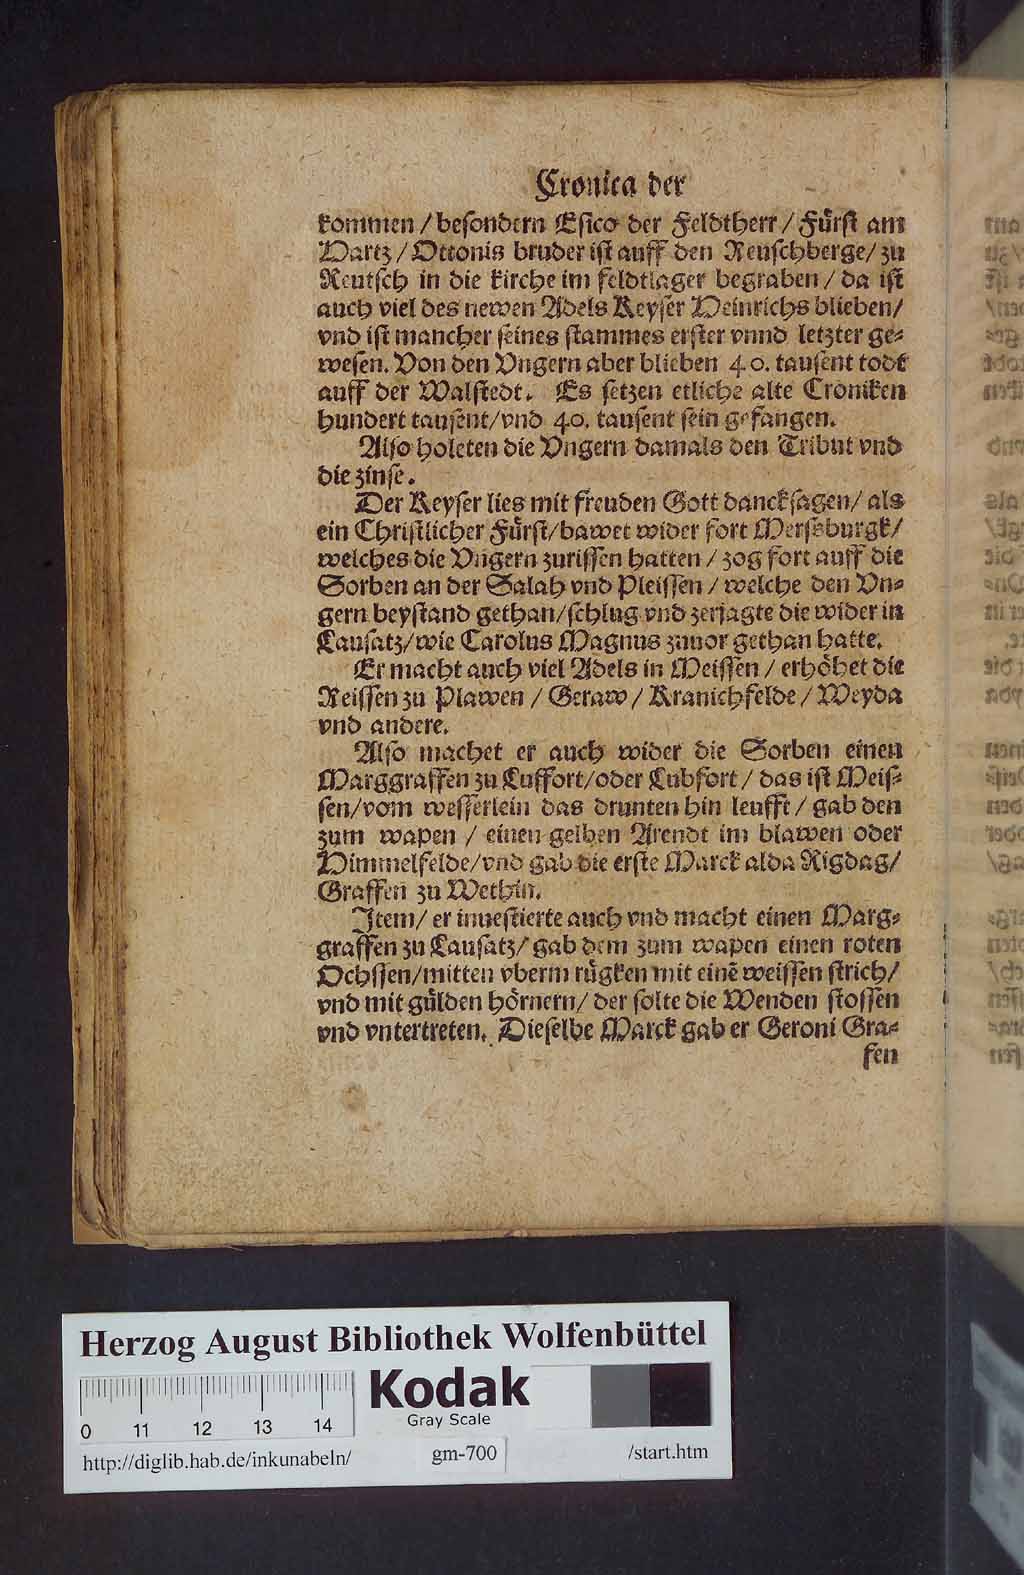 Cronica der
kommen / besondern Esico der Feldtherr / Fürst am
Hartz / Ottonis bruder ist auff den Reuschberge / zu
Keutsch in die kirche im feldtlager begraben / da ist
auch viel des newen Adels Keyser Heinrichs blieben /
vnd ist mancher seines stammes erster vnnd letzter ge⸗
wesen. Von den Vngern aber blieben 40. tausent todt
auff der Walstedt. Es setzen etliche alte Croniken
hundert tausent / vnd 40. tausent sein gefangen.
Also holeten die Vngern damals den Tribut vnd
die zinse.
Der Keyser lies mit freuden Gott dancksagen / als
ein Christlicher Fürst / bawet wider fort Merseburgk /
welches die Vngern zurissen hatten / zog fort auff die
Sorben an der Salah vnd Pleissen / welche den Vn⸗
gern beystand gethan / schlug vnd zerjagte die wider in
Lausatz / wie Carolus Magnus zuuor gethan hatte.
Er macht auch viel Adels in Meissen / erhöhet die
Reissen zu Plawen / Geraw / Kranichfelde / Weyda
vnd andere.
Also machet er auch wider die Sorben einen
Marggraffen zu Luffort / oder Lubfort / das ist Meis⸗
sen / vom wesserlein das drunten hin leufft / gab den
zum wapen / einen gelben Arendt im blawen oder
Himmelfelde / vnd gab die erste Marck alda Rigdag /
Graffen zu Wethin.
Item / er inuestierte auch vnd macht einen Marg⸗
graffen zu Lausatz / gab dem zum wapen einen roten
Ochssen / mitten vberm rügken mit einē weissen strich /
vnd mit gülden hörnern / der solte die Wenden stossen
vnd vntertreten. Dieselbe Marck gab er Geroni Gra⸗
fen
Herzog August Bibliothek Wolfenbüttel
0 11 12 13 14
Kodak
Gray Scale
http://diglib.hab.de/inkunabeln/ gm-700 /start.htm